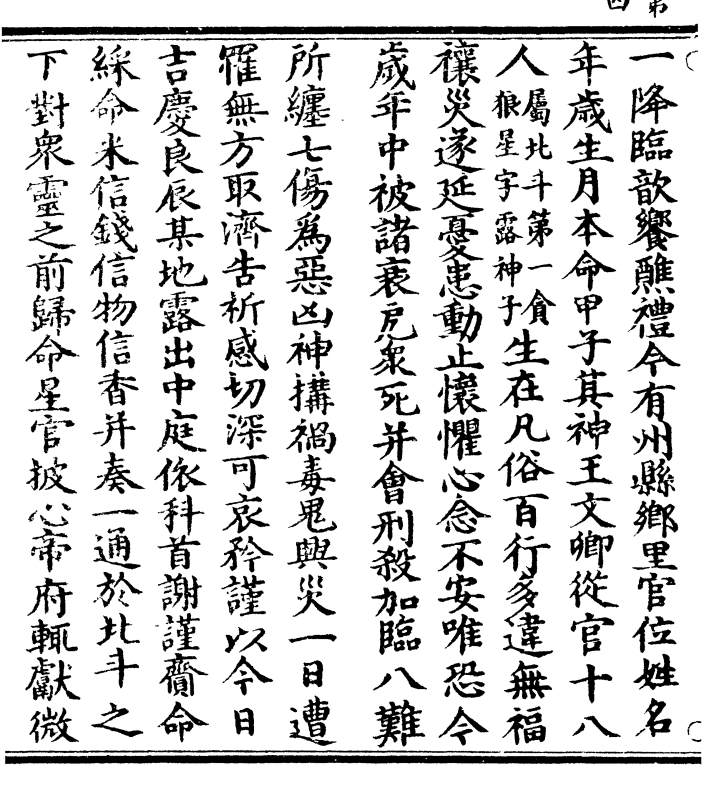 第
四
一降臨歆饗醮禮今有州縣鄉里官位姓名
年歲生月本命甲子其神王文卿從官十八
人屬北斗第一貪
狼星字露神子生在凡俗百行多違無福
禳災遂延憂患動止懷懼心念不安唯恐今
歲年中被諸衰厄衆死并會刑殺加臨八難
所纏七傷爲惡凶神搆禍毒鬼興災一日遭
羅無方取濟告祈感切深可哀矜謹以今日
吉慶良辰某地露出中庭依科首謝謹賷命
綵命米信錢信物信香并奏一通於北斗之
下對衆靈之前歸命星官披心帝府輒獻微